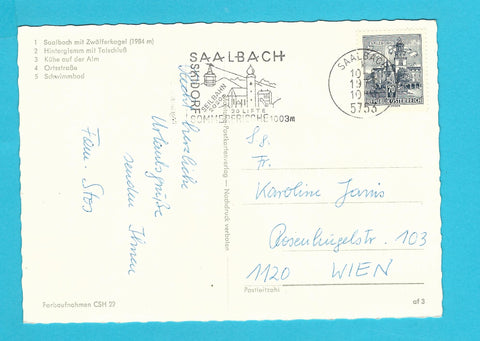 1 Saalbach mit Zwölferkogel (1984 m)
2 Hinterglemm mit Talschluß
3 Kühe auf der Alm
4 Ortsstraße
5 Schwimmbad
SAALBACH
SKIDORF
SEILBAHN
2000m
20 LIFTE
SOMMERFRISCHE 1003m
SAALBACH
10
19
10
5753
REPUBLIK ÖSTERREICH
herzliche
Urlaubsgrüße
senden Ihnen
Fam. Stos
Postkartenverlag — Nachdruck verboten
Fr.
Karoline Janis
Rosenhügelstr. 103
1120 WIEN
Postleitzahl
Farbaufnahmen CSH 22
af 3